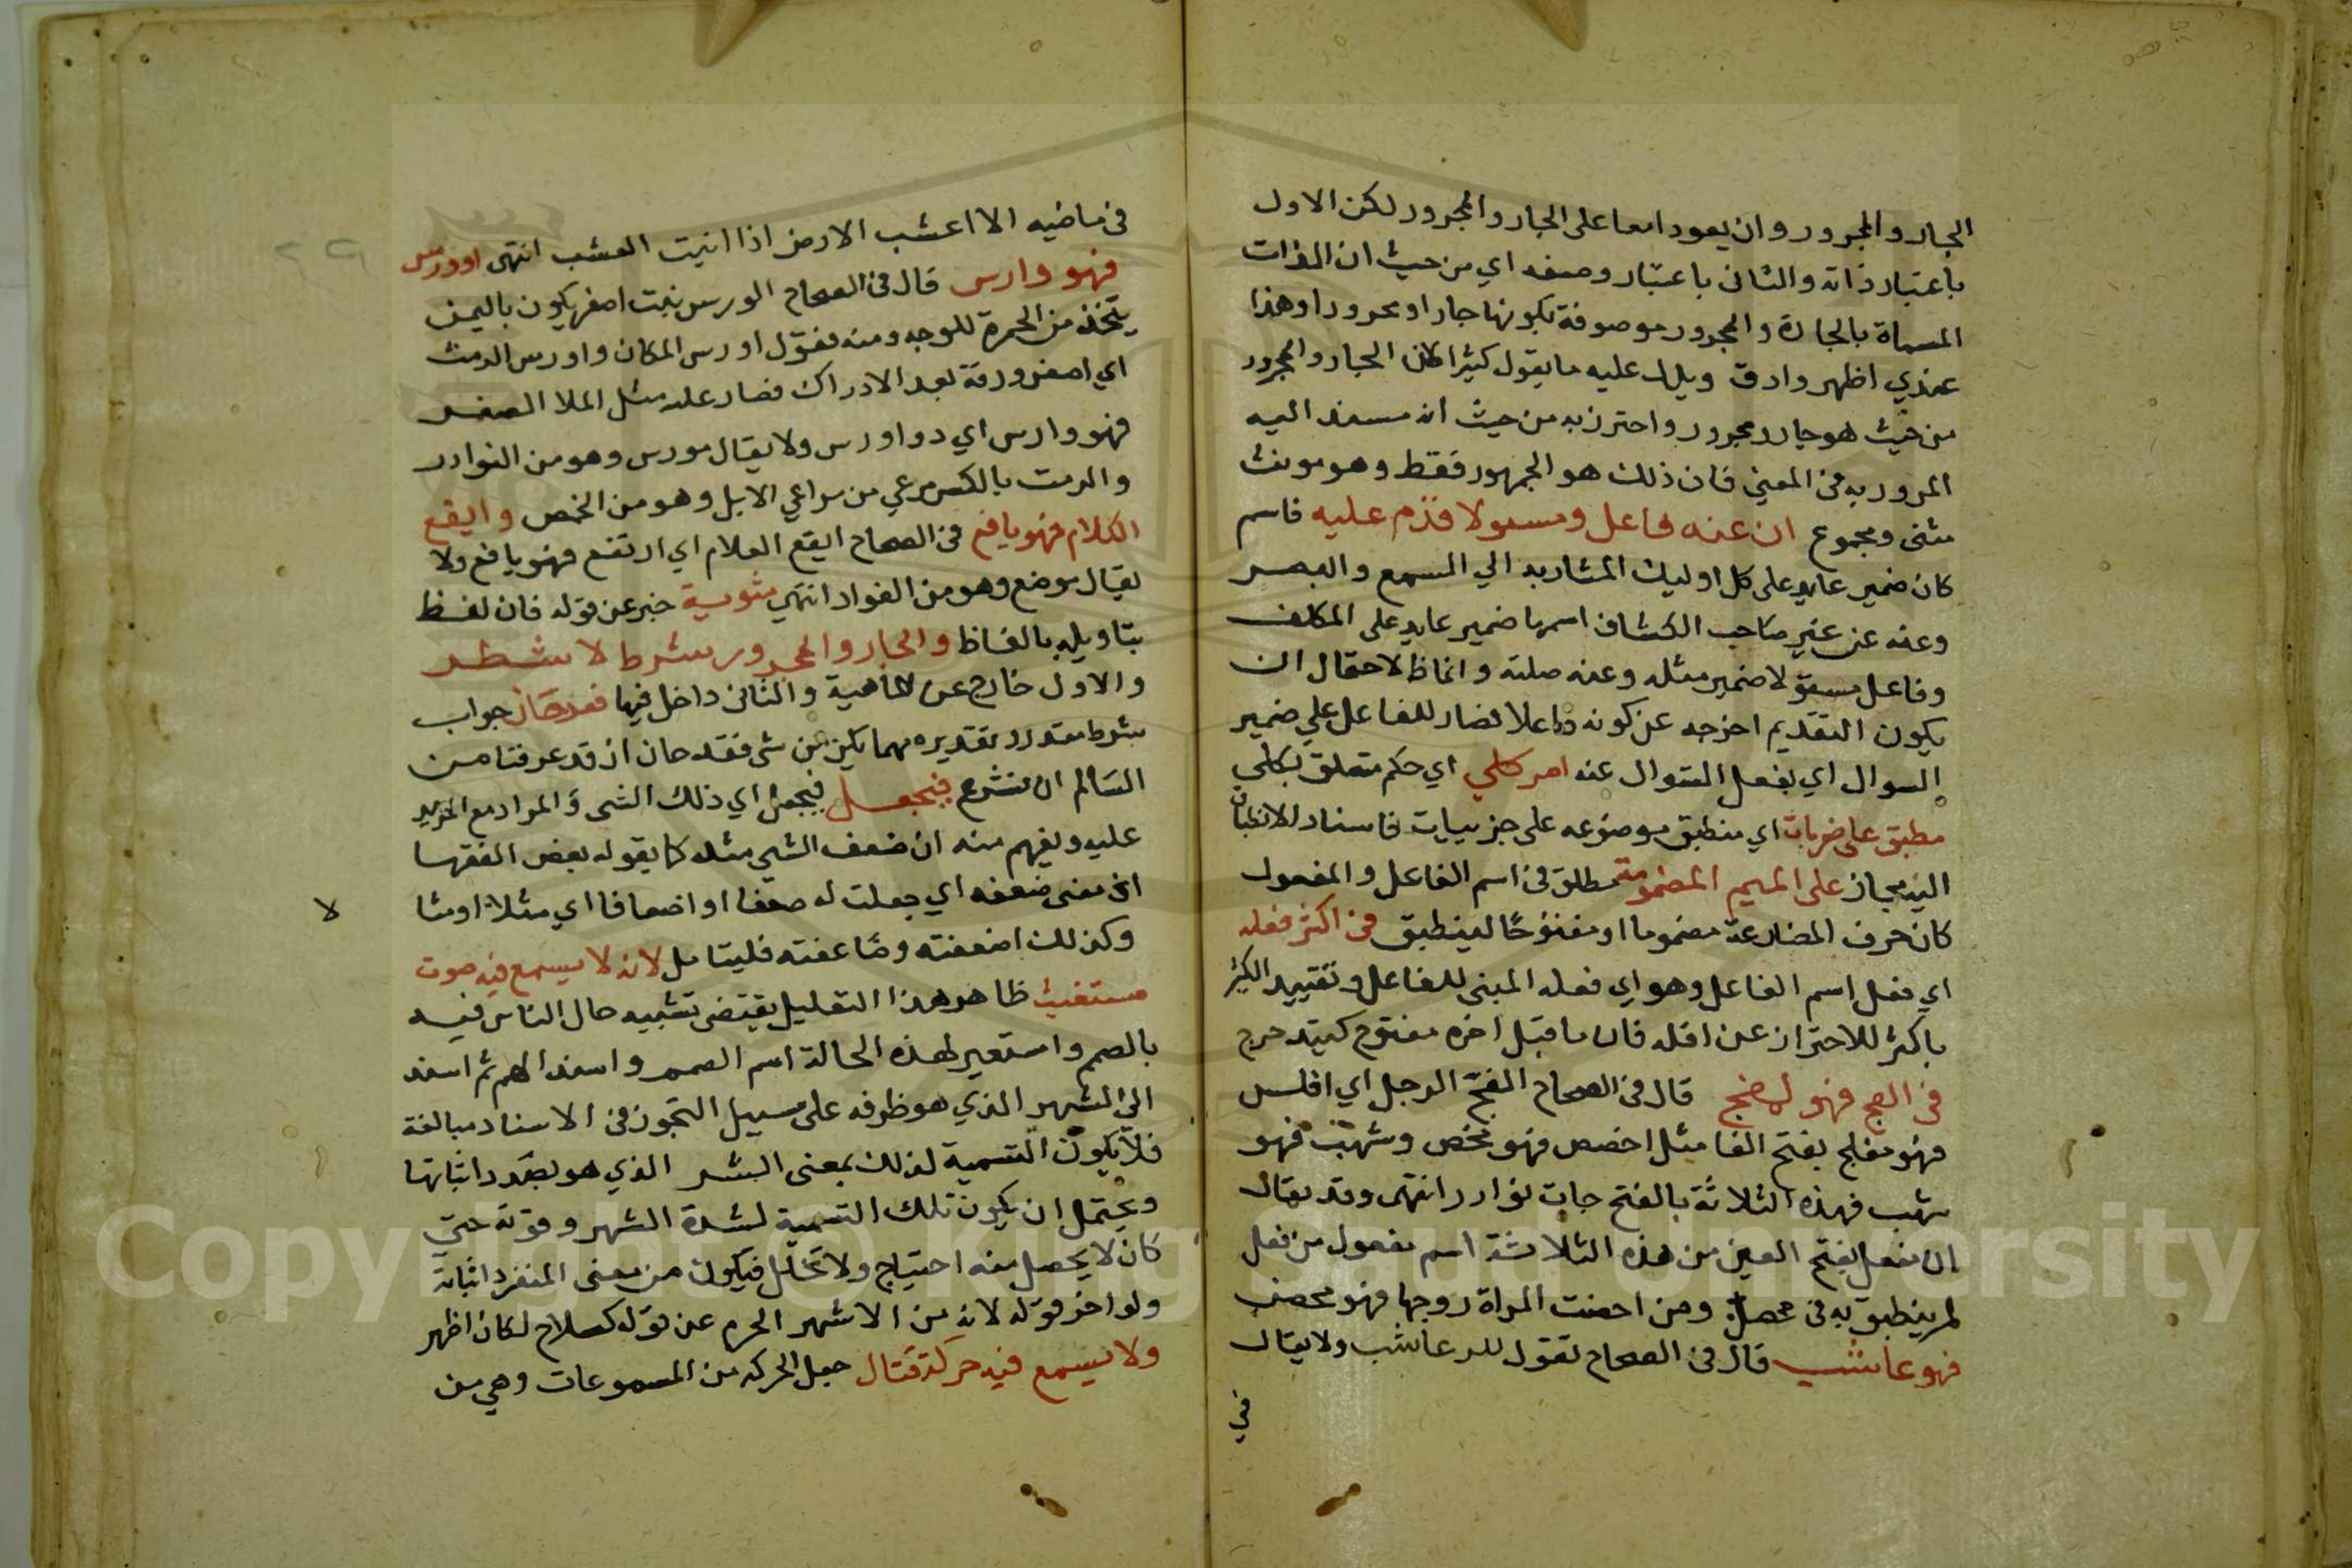 الجار والمجرور وان يعودا معا على الجار والمجرور لكن الاول
باعتبار ذاته والثانى باعتبار وصفه اي من حيث ان الذات
المسماة بالجارة والمجرور موصوفة بكونها جارا ومجرورا وهذا
عندي اظهر وادق ويدل عليه ما يقول كثيرا لان الجار والمجرور
من حيث هو جار ومجرور واحترز به من حيث انه مسند اليه
المرور به فى المعني فان ذلك هو المجهور فقط وهو مونث
مثنى ومجموع ان عنه فاعل ومسولا قدم عليه فاسم
كان ضمير عايد على كل اوليك المشار به الي السمع والبصر
وعنه عن غير صاحب الكشاف اسمها ضمير عايد على المكلف
وفاعل مسوولا ضمير مثله وعنه صلته وانما لاحتمال ان
يكون التقديم اخرجه عن كونه فاعلا فصار للفاعل علي ضمير
السوال اي بفعل السوال عنه امر كلي اي حكم متعلق بكلي
مطبق على جزيات اي منطبق موضوعه على جزييات فاسناد الانطباق
اليه مجاز على الميم المضمومة مطلق فى اسم الفاعل والمفعول
كان حرف المضارعة مضموما او مفتوحًا لينطبق فى اكثر فعله
اي فعل اسم الفاعل وهو اي فعله المبنى للفاعل وتقييد الكثير
باكثر للاحتراز عن اقله فان ما قبل اخره مفتوح كيتدحرج
فى الفج فهو قال فى الصحاح الفج الرجل اي افلس
فهو مفلج بفتح الفا مثل احصن فهو محصن وشهب فهو
شهب فهذه الثلاثة بالفتح جات نوادر انتهى وقد يقال
ان مفعل بفتح العين من هذه الثلاثة اسم مفعول من فعل
لم ينطبق به فى محصل ومن احصنت المراة زوجها فهو محصن
فهو عاشب قال فى الصحاح تقول للد عاشب ولا يقال
في
فى ماضيه الا اعشب الارض اذا انبت العشب انتهى اوورس
فهو وارس قال فى الصحاح الورس نبت اصفر يكون باليمن
يتخذ من الحمرة للوجه ومنه فقول اورس المكان واورس الرمث
اي اصفر ورقة بعد الادراك فصار عليه مثل الملا الصفر
فهو وارس اي ذو اورس ولا يقال مورس وهو من النوادر
والرمث بالكسر مرعي من مراعي الابل وهو من الحمص وايقع
الكلام فهو يافع فى الصحاح ايقع الغلام اي ارتفع فهو يافع ولا
يقال موضع وهو من النوادر انتهي مثوسية خبر عن قوله فان لفظ
بتاويله بالفاظ والجار والمجرور شرط لا شطر
والاول خارج عن الماهية والثانى داخل فيها فقد حان جواب
شرط مقدر تقديره مهما يكن من شى فقد حان اذ قد عرفتا من
السالم ان نشرع فيجعل فيجعل اي ذلك الشى والمراد مع المزيد
عليه ويفهم منه ان ضعف الشي مثله كما يقوله بعض الفقها
اى معنى ضعفه اي جعلت له ضعفا او اضعافا اي مثلا او مثا
لا
وكذلك اضعفته وضاعفته فليتامل لانه لا يسمع فيه صوت
مستغيث ظاهر هذا التعليل يقتضى تشبيه حال الناس فيه
بالصم واستعير لهذه الحالة اسم الصمم واسند الهم ثم اسند
الى الشهر الذي هو ظرفه على سبيل التجوز فى الاسناد مبالغة
فلا يكون التسمية لذلك بمعنى الشر الذي هو بصدد اثباتها
ويحتمل ان يكون تلك التسمية لشدة الشهر وقوته حتى
كان لا يحصل منه احتياج ولا تحلل فيكون من معنى المنفرد اثباتة
ولو اخر قوله لانه من الاشهر الحرم عن قوله كسلاح لكان اظهر
ولا يسمع فيه حركة قتال جعل الحركه من المسموعات وهي من
Copyright © King Saud University